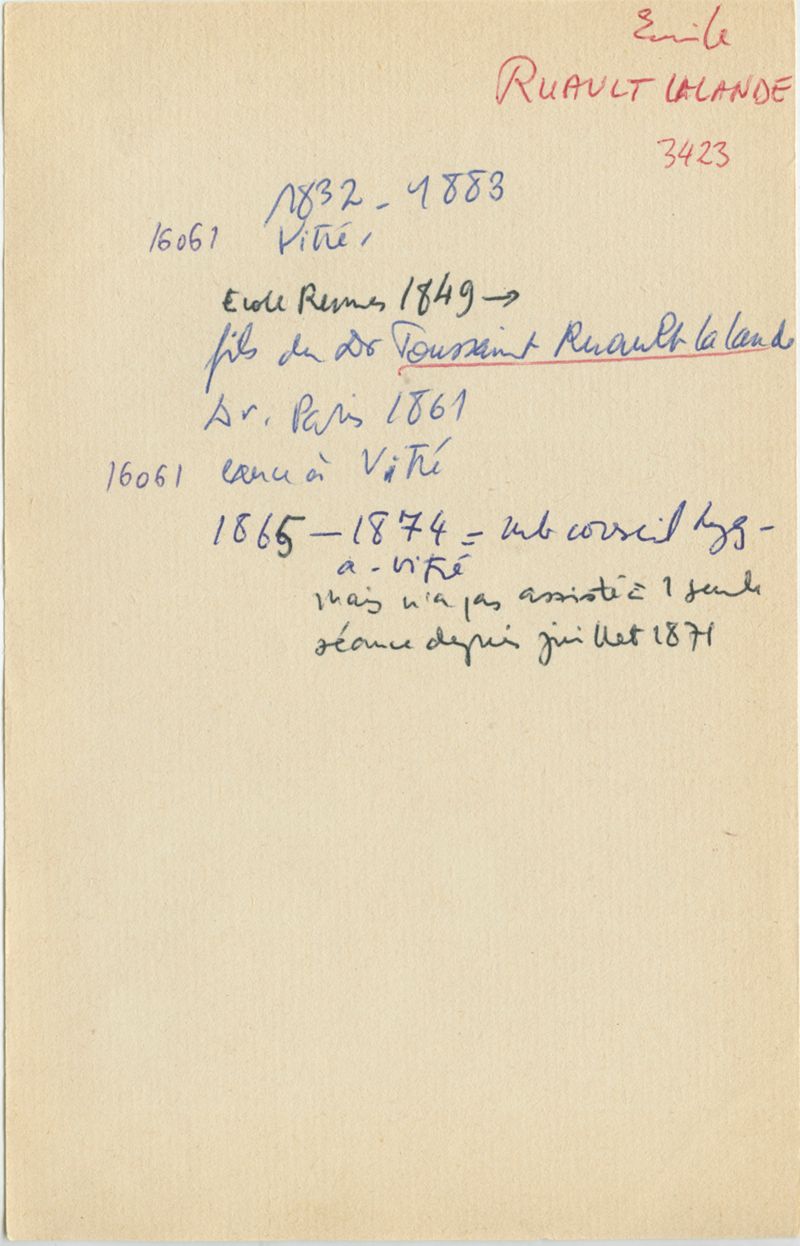 Emile
RUAULT LALANDE
3423
1832 - 1883
16061 Vitré,
Ecole Rennes 1849 →
fils du Dr Toussaint Ruault Lalande
Dr. Paris 1861
16061 exerce à Vitré
1865 - 1874 = mb conseil hyg -
a - Vitré
mais n'a pas assisté à 1 seule
séance depuis juillet 1871